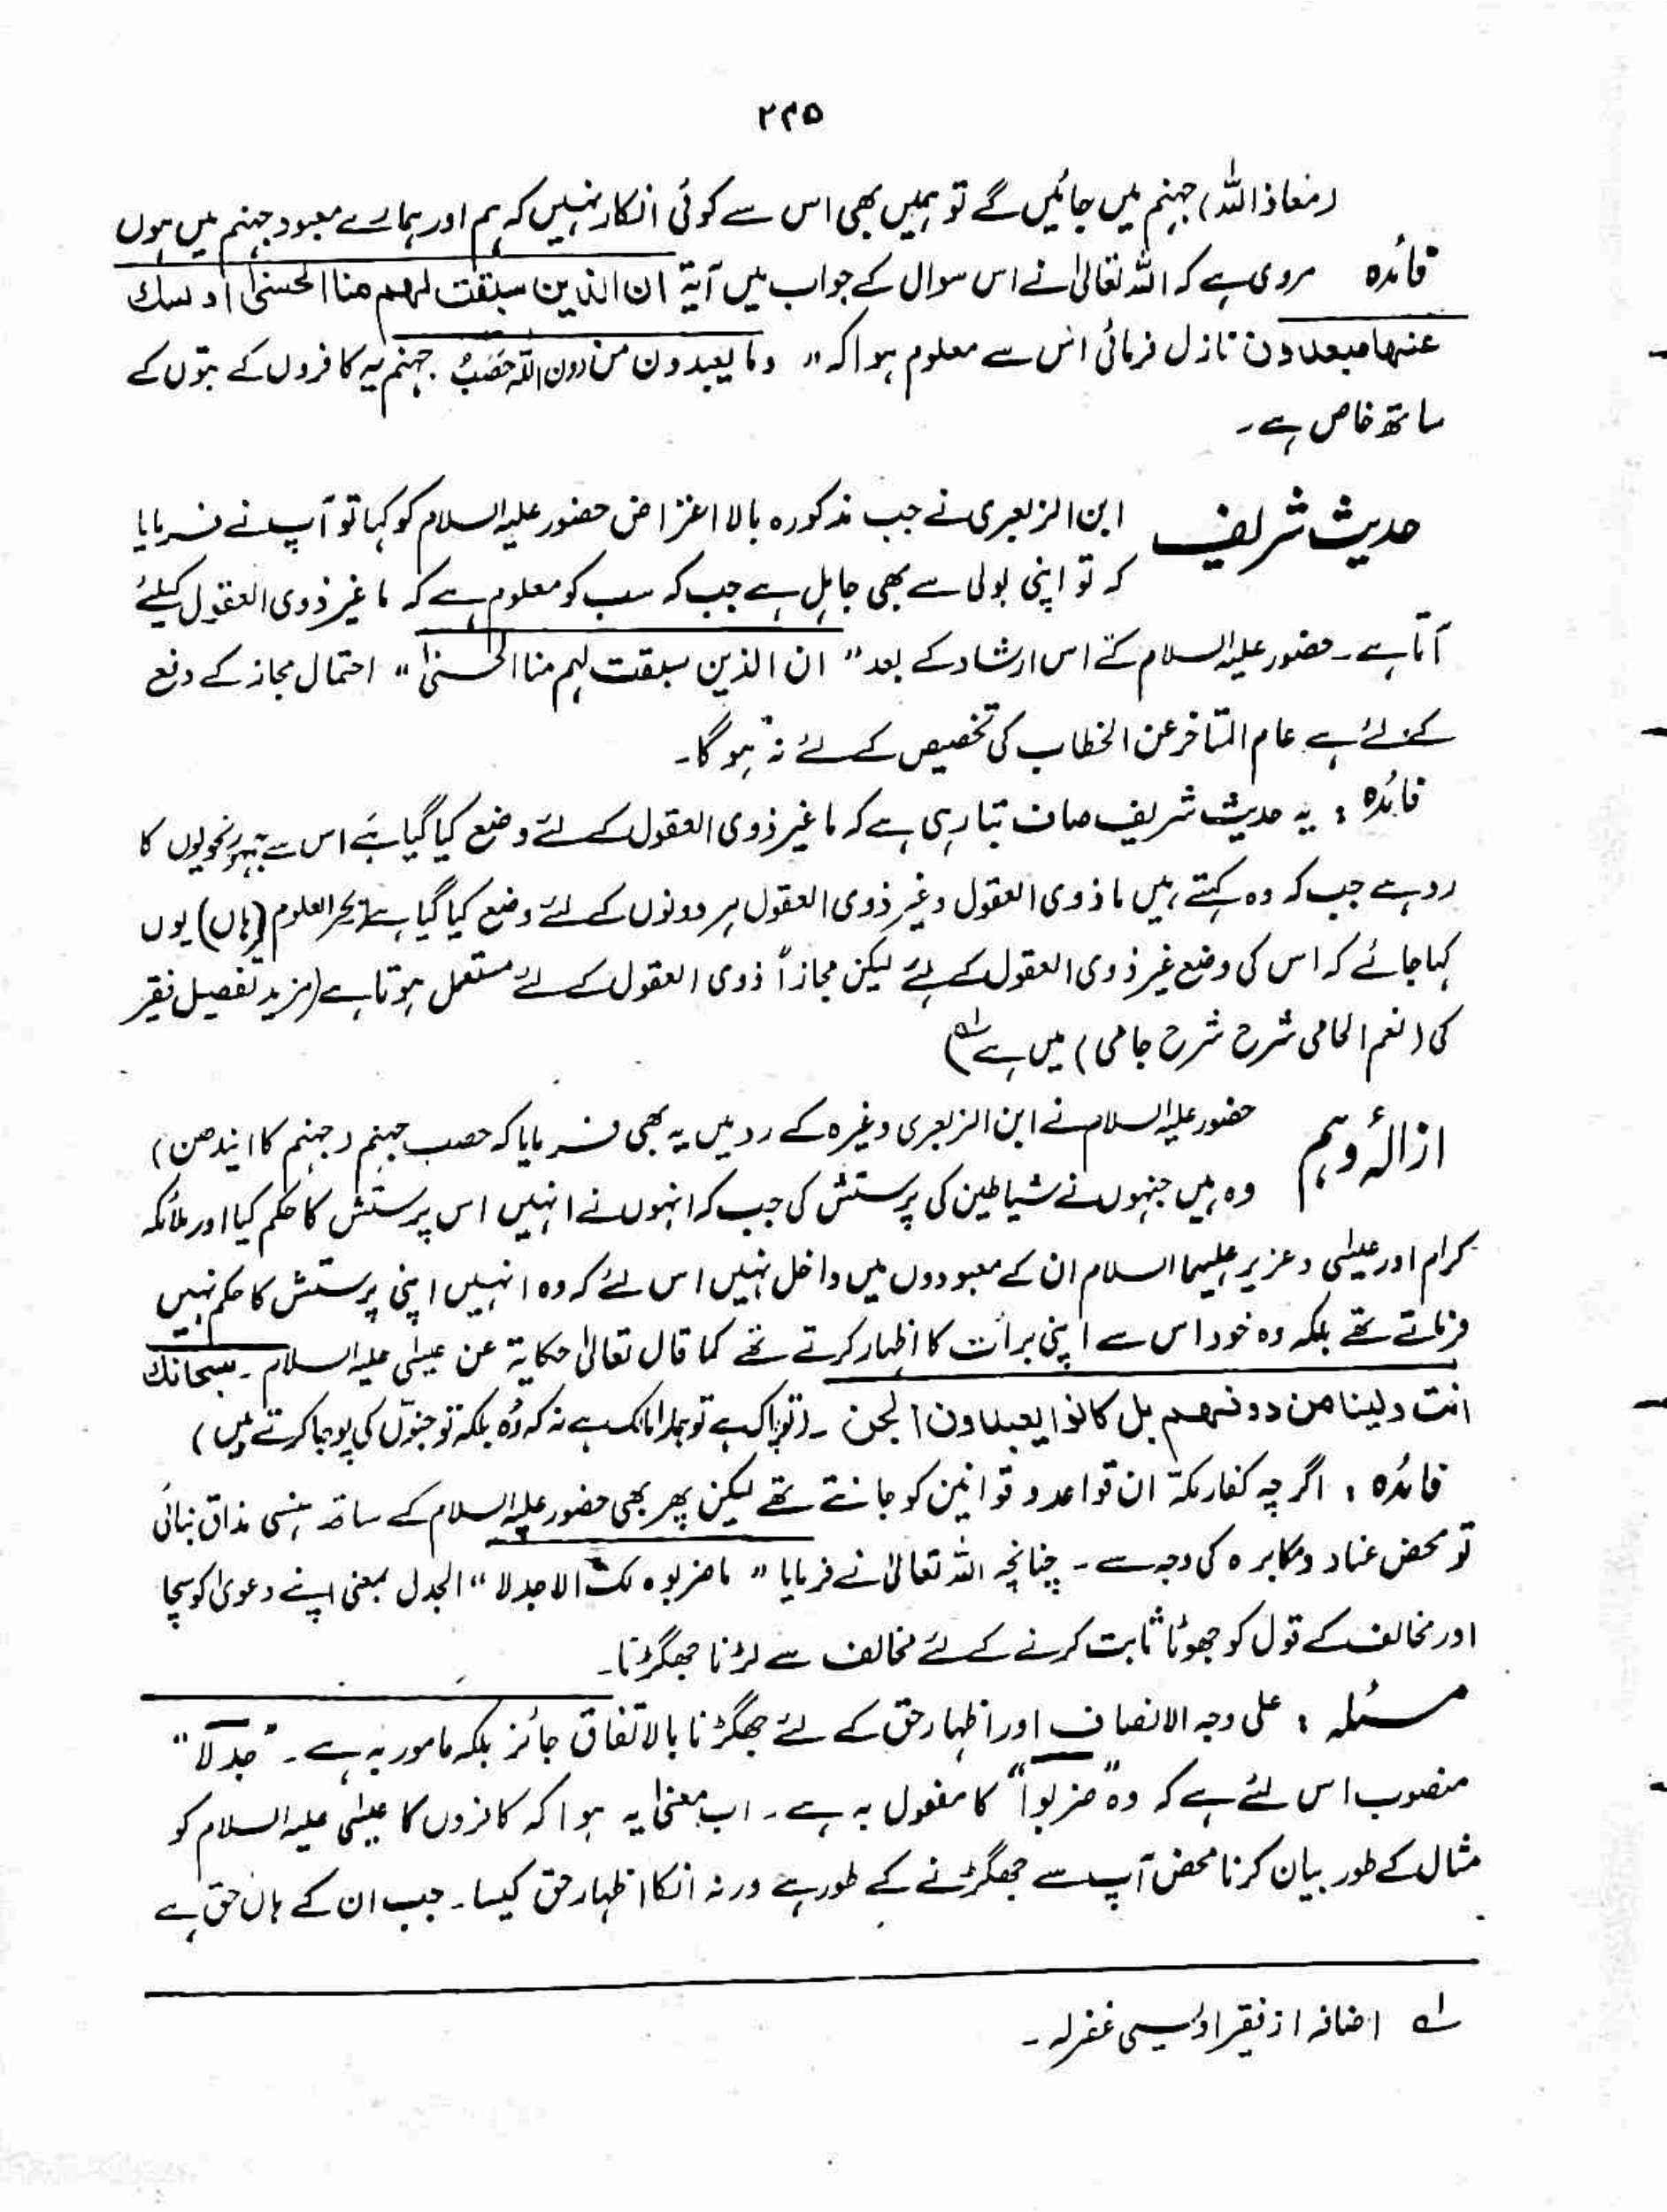 ۲۴۵
(معاذ اللہ) جہنم میں جائیں گے تو ہمیں بھی اس سے کوئی انکار نہیں کہ ہم اور ہمارے معبود جہنم میں ہوں
فائدہ مروی ہے کہ اللہ تعالیٰ نے اس سوال کے جواب میں آیۃ ان الذین سبقت لہم منا الحسنیٰ اولٰئک
عنہا مبعدون نازل فرمائی اس سے معلوم ہوا کہ " وما یعبدون من دون اللہ حَصَبُ جہنم یہ کافروں کے بتوں کے
ساتھ خاص ہے۔
حدیث شریف ابن الزبعری نے جب مذکورہ بالا اعتراض حضور علیہ السلام کو کہا تو آپ نے فرمایا
کہ تو اپنی بولی سے بھی جاہل ہے جب کہ سب کو معلوم ہے کہ ما غیر ذوی العقول کیلئے
آتا ہے۔ حضور علیہ السلام کے اس ارشاد کے بعد " ان الذین سبقت لہم منا الحسنیٰ " احتمال مجاز کے دفع
کے لئے ہے عام المتاخر عن الخطاب کی تخصیص کے لئے نہ ہو گا۔
فائدہ : یہ حدیث شریف صاف بتا رہی ہے کہ ما غیر ذوی العقول کے لئے وضع کیا گیا ہے اس سے جمہور نحویوں کا
رد ہے جب کہ وہ کہتے ہیں ما ذوی العقول و غیر ذوی العقول ہر دونوں کے لئے وضع کیا گیا ہے (بحر العلوم) (ہاں) یوں
کہا جائے کہ اس کی وضع غیر ذوی العقول کے لئے لیکن مجازاً ذوی العقول کے لئے مستعمل ہوتا ہے (مزید تفصیل فقیر
کی (نعم الحامی شرح شرح جامی) میں ہے) ؎۱
ازالۂ وہم حضور علیہ السلام نے ابن الزبعری وغیرہ کے رد میں یہ بھی فرمایا کہ حصب جہنم (جہنم کا ایندھن)
وہ ہیں جنہوں نے شیاطین کی پرستش کی جب کہ انہوں نے انہیں اس پرستش کا حکم کیا اور ملائکہ
کرام اور عیسٰی و عزیر علیہما السلام ان کے معبودوں میں داخل نہیں اس لئے کہ وہ انہیں اپنی پرستش کا حکم نہیں
فرماتے تھے بلکہ وہ خود اس سے اپنی برأت کا اظہار کرتے تھے کما قال تعالیٰ حکایۃ عن عیسٰی علیہ السلام۔ سبحانک
انت ولینا من دونہم بل کانوا یعبدون الجن۔ (تو پاک ہے تو ہمارا مالک ہے نہ کہ وُہ بلکہ تو جنوّں کی پوجا کرتے ہیں)
فائدہ : اگرچہ کفار مکۃ ان قواعد و قوانین کو جانتے تھے لیکن پھر بھی حضور علیہ السلام کے ساتھ ہنسی مذاق بنائی
تو محض عناد و مکابرہ کی وجہ سے۔ چنانچہ اللہ تعالیٰ نے فرمایا " ماضربوہ لک الا جدلا " الجدل بمعنی اپنے دعویٰ کو سچا
اور مخالف کے قول کو جھوٹا ثابت کرنے کے لئے مخالف سے لڑنا جھگڑنا۔
مسئلہ : علی وجہ الانصاف اور اظہار حق کے لئے جھگڑنا بالاتفاق جائز بلکہ مامور بہ ہے۔ "جدلاً"
منصوب اس لئے ہے کہ وہ "ضربوا" کا مفعول بہ ہے۔ اب معنیٰ یہ ہوا کہ کافروں کا عیسٰی علیہ السلام کو
مثال کے طور بیان کرنا محض آپ سے جھگڑنے کے طور ہے ورنہ انکا اظہار حق کیسا۔ جب ان کے ہاں حق ہے
؎۱ اضافہ از فقیر اویسی غفرلہ۔